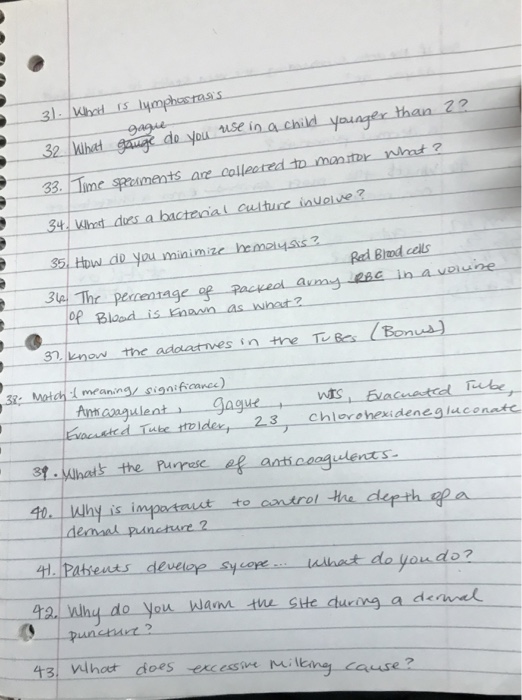 31. What is lymphostasis
gague
32 What gauge do you use in a child younger than 2?
33. Time speciments are collected to monitor what?
34. What does a bacterial culture involve?
35. How do you minimize hemolysis?
Red Blood cells
36. The percentage of packed army RBC in a volume
of Blood is known as what?
37. know the addatives in the TuBes (Bonus)
38. Match (meaning/significance)
Anticoagulent, gague, WTS, Evacuated Tube,
Evacuated Tube Holder, 23, chlorohexidenegluconate
39. What's the purpose of anticoagulents.
40. Why is important to control the depth of a
dermal puncture?
41. Patients develop sycope... What do you do?
42. Why do you warm the site during a dermal
puncture?
43. What does excessive milking cause?